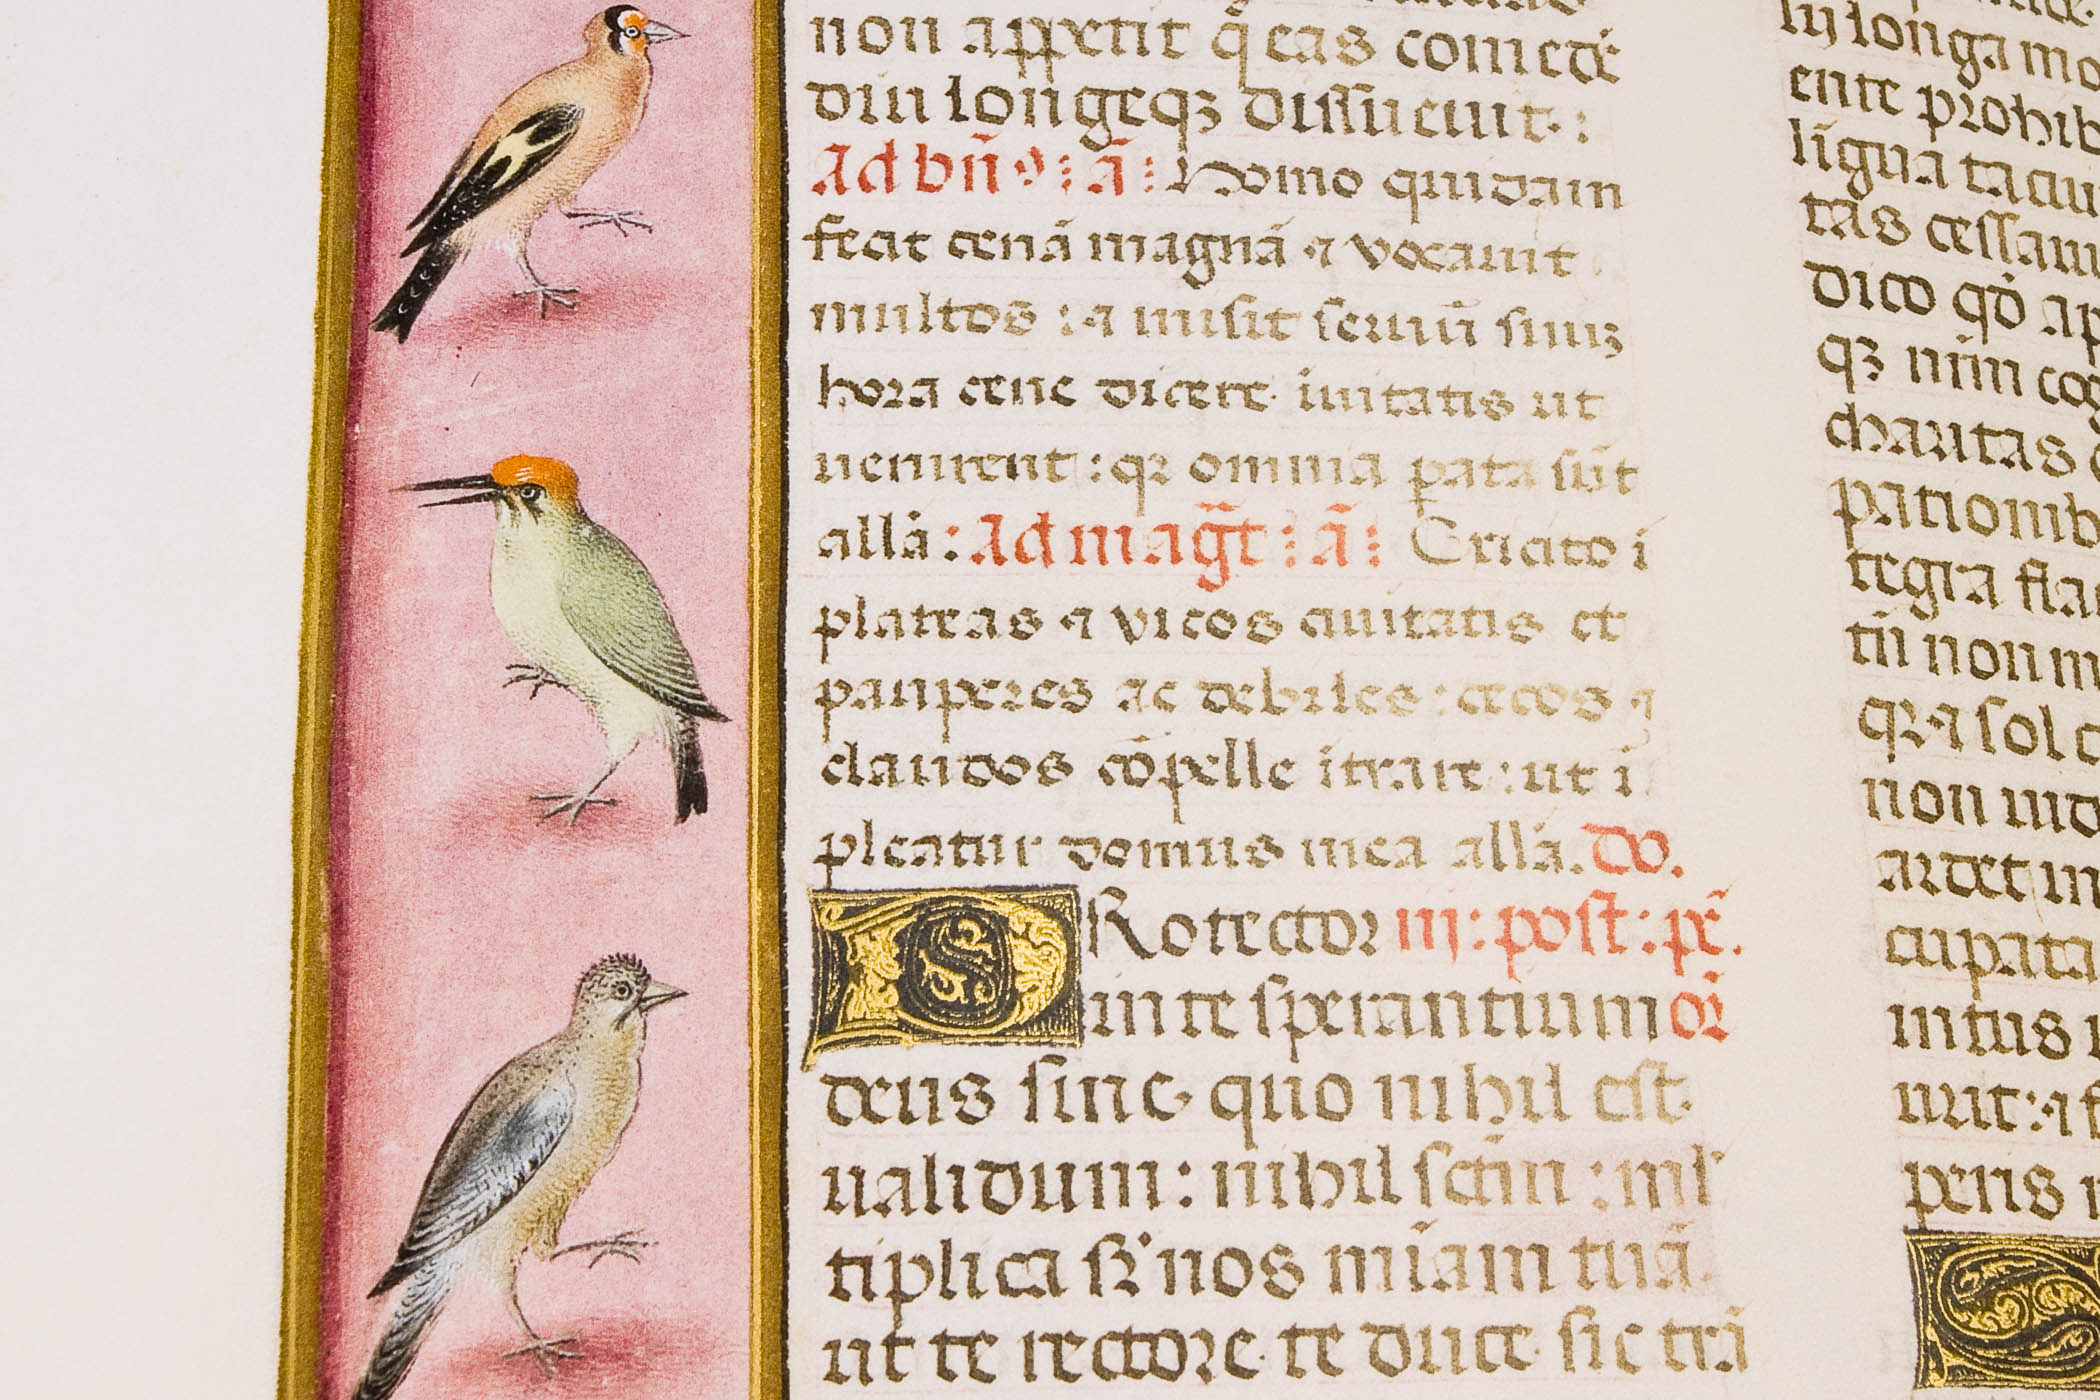 non appetit q̃ eas comedẽ
diu longeqꝫ dissueuit :
Ad bñs : ã : Homo quidam
fecit cenã magnã ⁊ vocauit
multos : ⁊ misit seruũ suuꝫ
hora cene dicere inuitatis ut
uenirent : qꝛ omnia ꝑata sũt
allã : Ad mag̃t : ã : Exi cito ĩ
plateas ⁊ vicos ciuitatis et
pauperes ac debiles : cecos ⁊
claudos cõpelle ĩtrare : ut ĩ
pleatur domus mea allã. Do.
PRotector iij : post : pẽ.
in te sperantium or̃
deus sine quo nihil est
ualidum : nihil sctm̃ : ml̃
tiplica sr̃ nos miam̃ tuã
ut te rectore te duce sic trã
longa mo
ente prohib
ligua taciu
tas cessaui
dico qđ ap
qꝫ nim̃ coe
charitas
pationib
tegra fia
tñ non m
qꝛ ⁊ sol c
non uid
ardet in
cupata
intus
urit : ⁊ f
pens